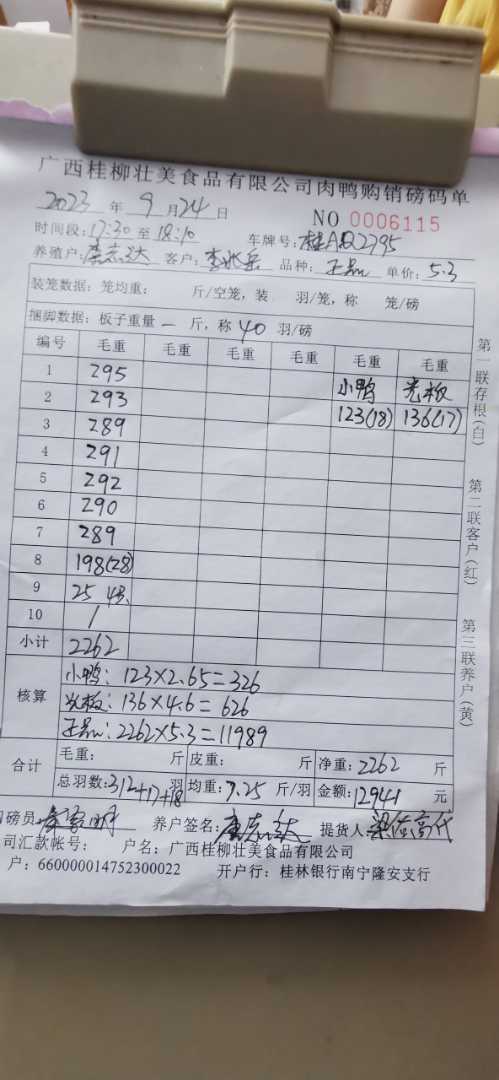 广西桂柳壮美食品有限公司肉鸭购销磅码单
2023 年 9 月 24 日 NO 0006115
时间段: 17:30 至 18:10 车牌号: 桂A 2795
养殖户: 志达 客户: 李 品种: 单价: 5.3
装笼数据: 笼均重: 斤/空笼, 装 羽/笼, 称 笼/磅
捆脚数据: 板子重量 一 斤, 称 40 羽/磅
编号 毛重 毛重 毛重 毛重 毛重 毛重
1 295 小鸭 光板
2 293 123(18) 136(17)
3 289
4 291
5 292
6 290
7 289
8 198(28)
9 25
10 /
小计 2262
核算
小鸭: 123×2.65=326
光板: 136×4.6=626
2262×5.3=11989
合计
毛重: 斤 皮重: 斤 净重: 2262 斤
总羽数: 312+17+18 羽 均重: 7.25 斤/羽 金额: 12941 元
磅员: 养户签名: 志达 提货人:
司汇款帐号: 户名: 广西桂柳壮美食品有限公司
户: 660000014752300022 开户行: 桂林银行南宁隆安支行
第一联存根(白)
第二联客户(红)
第三联养户(黄)